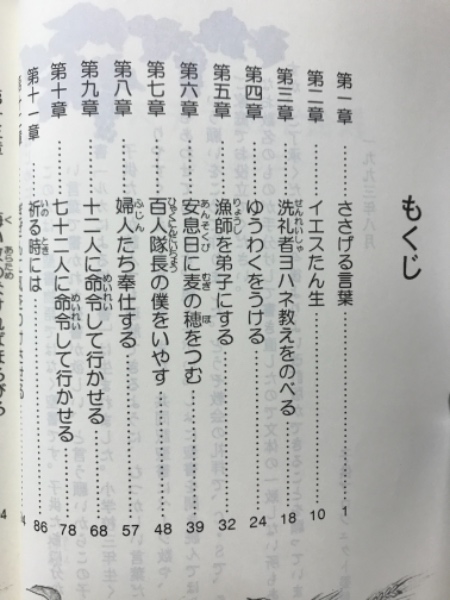 もくじ
第一章 ささげる言葉 1
第二章 イエスたん生 10
第三章 洗礼者ヨハネ教えをのべる 18
第四章 ゆうわくをうける 24
第五章 漁師を弟子にする 32
第六章 安息日に麦の穂をつむ 39
第七章 百人隊長の僕をいやす 48
第八章 婦人たち奉仕する 57
第九章 十二人に命令して行かせる 68
第十章 七十二人に命令して行かせる 78
第十一章 祈る時には 86